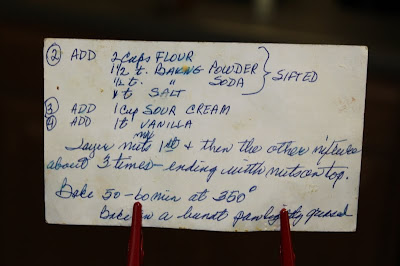 ② ADD 2 Cups FLOUR
1 1/2 t. BAKING POWDER
1/2 t. " SODA } SIFTED
t SALT
③ ADD 1 Cup SOUR CREAM
④ ADD 1 t VANILLA
Layer nuts 1st + then the other mixture
about 3 times - ending with nuts on top.
Bake 50-60 min at 350°
Bake in a bundt pan lightly greased